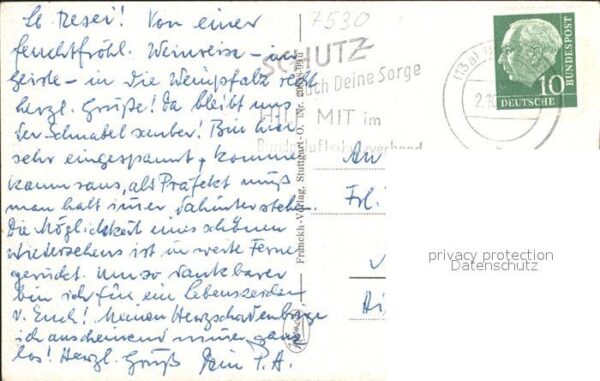 Lb. Resei! Von einer
feuchtfröhl. Weinreise – im
Geiste – in die Weinpfalz recht
herzl. Grüße! Da bleibt uns
der Schnabel sauber! Bin hier
sehr eingespannt, komme
kaum raus, als Präfekt muß
man halt immer dahinterstehen.
Die Möglichkeit eines schönen
Wiedersehens ist in weite Ferne
gerückt. Um so dankbarer
bin ich für ein Lebenszeichen
v. Euch! Meinen
ich anscheinend nimmer ganz
los! Herzl. Gruß Dein P.A.
7530
SCHUTZ
auch Deine Sorge
HILF MIT im
Bundesluftschutzverband
Franckh-Verlag, Stuttgart-O. Nr.
(13a)
2.10
10
DEUTSCHE
BUNDESPOST
An
Frl.
privacy protection
Datenschutz